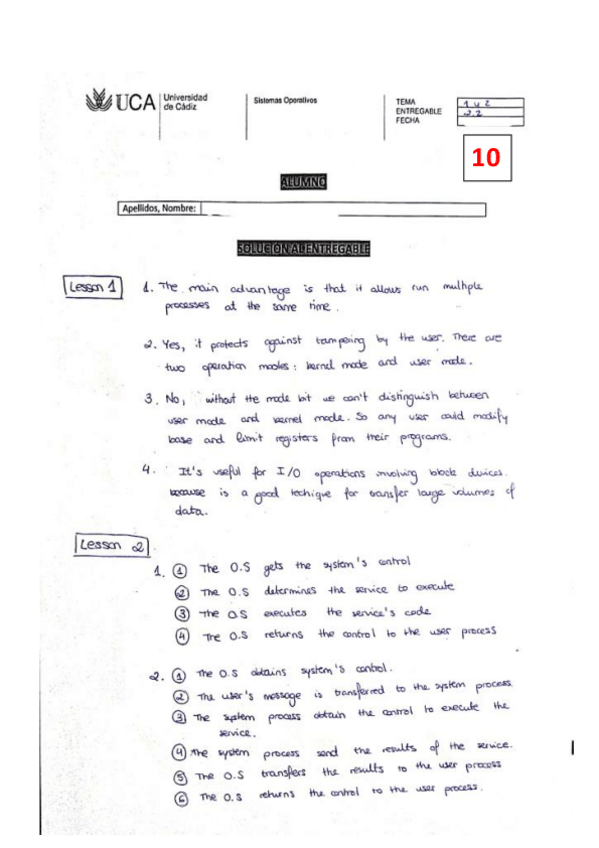 UCA Universidad de Cádiz
Sistemas Operativos
TEMA 1 y 2
ENTREGABLE 2.2
FECHA
10
ALUMNO
Apellidos, Nombre:
SOLUCIÓN AL ENTREGABLE
Lesson 1
1. The main advantage is that it allows run multiple
processes at the same time.
2. Yes, it protects against tampering by the user. There are
two operation modes: kernel mode and user mode.
3. No, without the mode bit we can't distinguish between
user mode and kernel mode. So any user could modify
base and limit registers from their programs.
4. It's useful for I/O operations involving block devices.
because is a good techique for transfer large volumes of
data.
Lesson 2
1. 1 The O.S gets the system's control
2 The O.S determines the service to execute
3 The O.S executes the service's code
4 The O.S returns the control to the user process
2. 1 The O.S obtains system's control.
2 The user's message is transferred to the system process.
3 The system process obtain the control to execute the
service.
4 The system process send the results of the service.
5 The O.S transfers the results to the user process
6 The O.S returns the control to the user process.